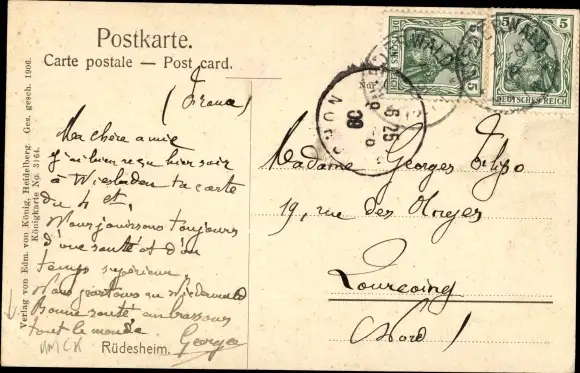 Postkarte.
Carte postale — Post card.
(France)
Ma chère amie
J'ai bien reçu hier soir
à Wiesbaden ta carte
du 4 ct.
Nous jouissons toujours
d'une santé et d'un
temps supérieur.
Nous partons au Niederwald
Bonne santé embrassons
tout le monde.
Georges
Rüdesheim.
Verlag von Edm. von König, Heidelberg. Ges. gesch. 1906.
Königkarte No. 3164.
Madame Georges
19, rue des Anges
Tourcoing
(Nord)
5 5
DEUTSCHES REICH
5 5
DEUTSCHES REICH
NORD